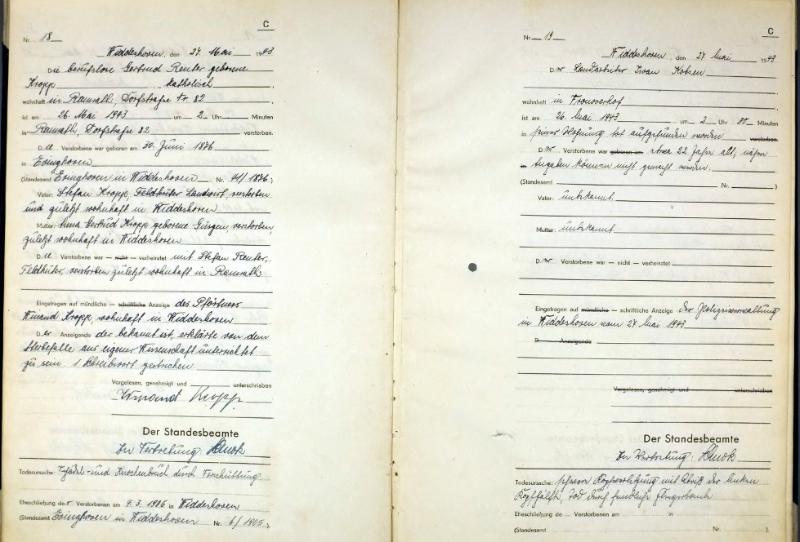 C
Nr. 18
Widdershoven den 27. Mai 1943
Die berufslose Gertrud Reuter geborene
Kropp katholisch
wohnhaft in Ramrath, Dorfstraße Nr. 82
ist am 26. Mai 1943 um 2 Uhr Minuten
in Ramrath, Dorfstraße 82 verstorben.
Die Verstorbene war geboren am 30. Juni 1876
in
(Standesamt in Widdershoven Nr. 41/1876)
Vater: Stefan Kropp, Landwirt, verstorben
und zuletzt wohnhaft in Widdershoven
Mutter: Anna Gertrud Kropp geborene verstorben,
zuletzt wohnhaft in Widdershoven
Die Verstorbene war — nicht — verheiratet mit Stefan Reuter,
verstorben zuletzt wohnhaft in Ramrath
Eingetragen auf mündliche — schriftliche Anzeige des
Kropp, wohnhaft in Widdershoven
Der Anzeigende der bekannt ist, erklärte von dem
Sterbefalle aus eigener Wissenschaft unterrichtet
zu sein. 1 gestrichen
Vorgelesen, genehmigt und unterschrieben
Kropp
Der Standesbeamte
In Vertretung
Todesursache: Schädel- und Knochenbruch durch Verschüttung
Eheschließung der Verstorbenen am 9.3.1905 in Widdershoven
(Standesamt in Widdershoven Nr. 6/1905)
C
Nr. 19
Widdershoven den 27. Mai 1943
Der Landarbeiter Iwan
wohnhaft in
ist am 26. Mai 1943 um 2 Uhr Minuten
in tot aufgefunden worden verstorben.
Der Verstorbene war geboren am etwa 22 Jahre alt, nähere
in Angaben können nicht gemacht werden.
(Standesamt Nr. )
Vater: unbekannt
Mutter: unbekannt
Der Verstorbene war — nicht — verheiratet
Eingetragen auf mündliche — schriftliche Anzeige der Polizeiverwaltung
in Widdershoven vom 27. Mai 1943
D Anzeigende
Vorgelesen, genehmigt und unterschrieben
Der Standesbeamte
In Vertretung
Todesursache: schwere Kopfverletzung mit der linken
Kopfhälfte, Tod durch feindliche
Eheschließung de Verstorbenen am in
(Standesamt Nr. ).